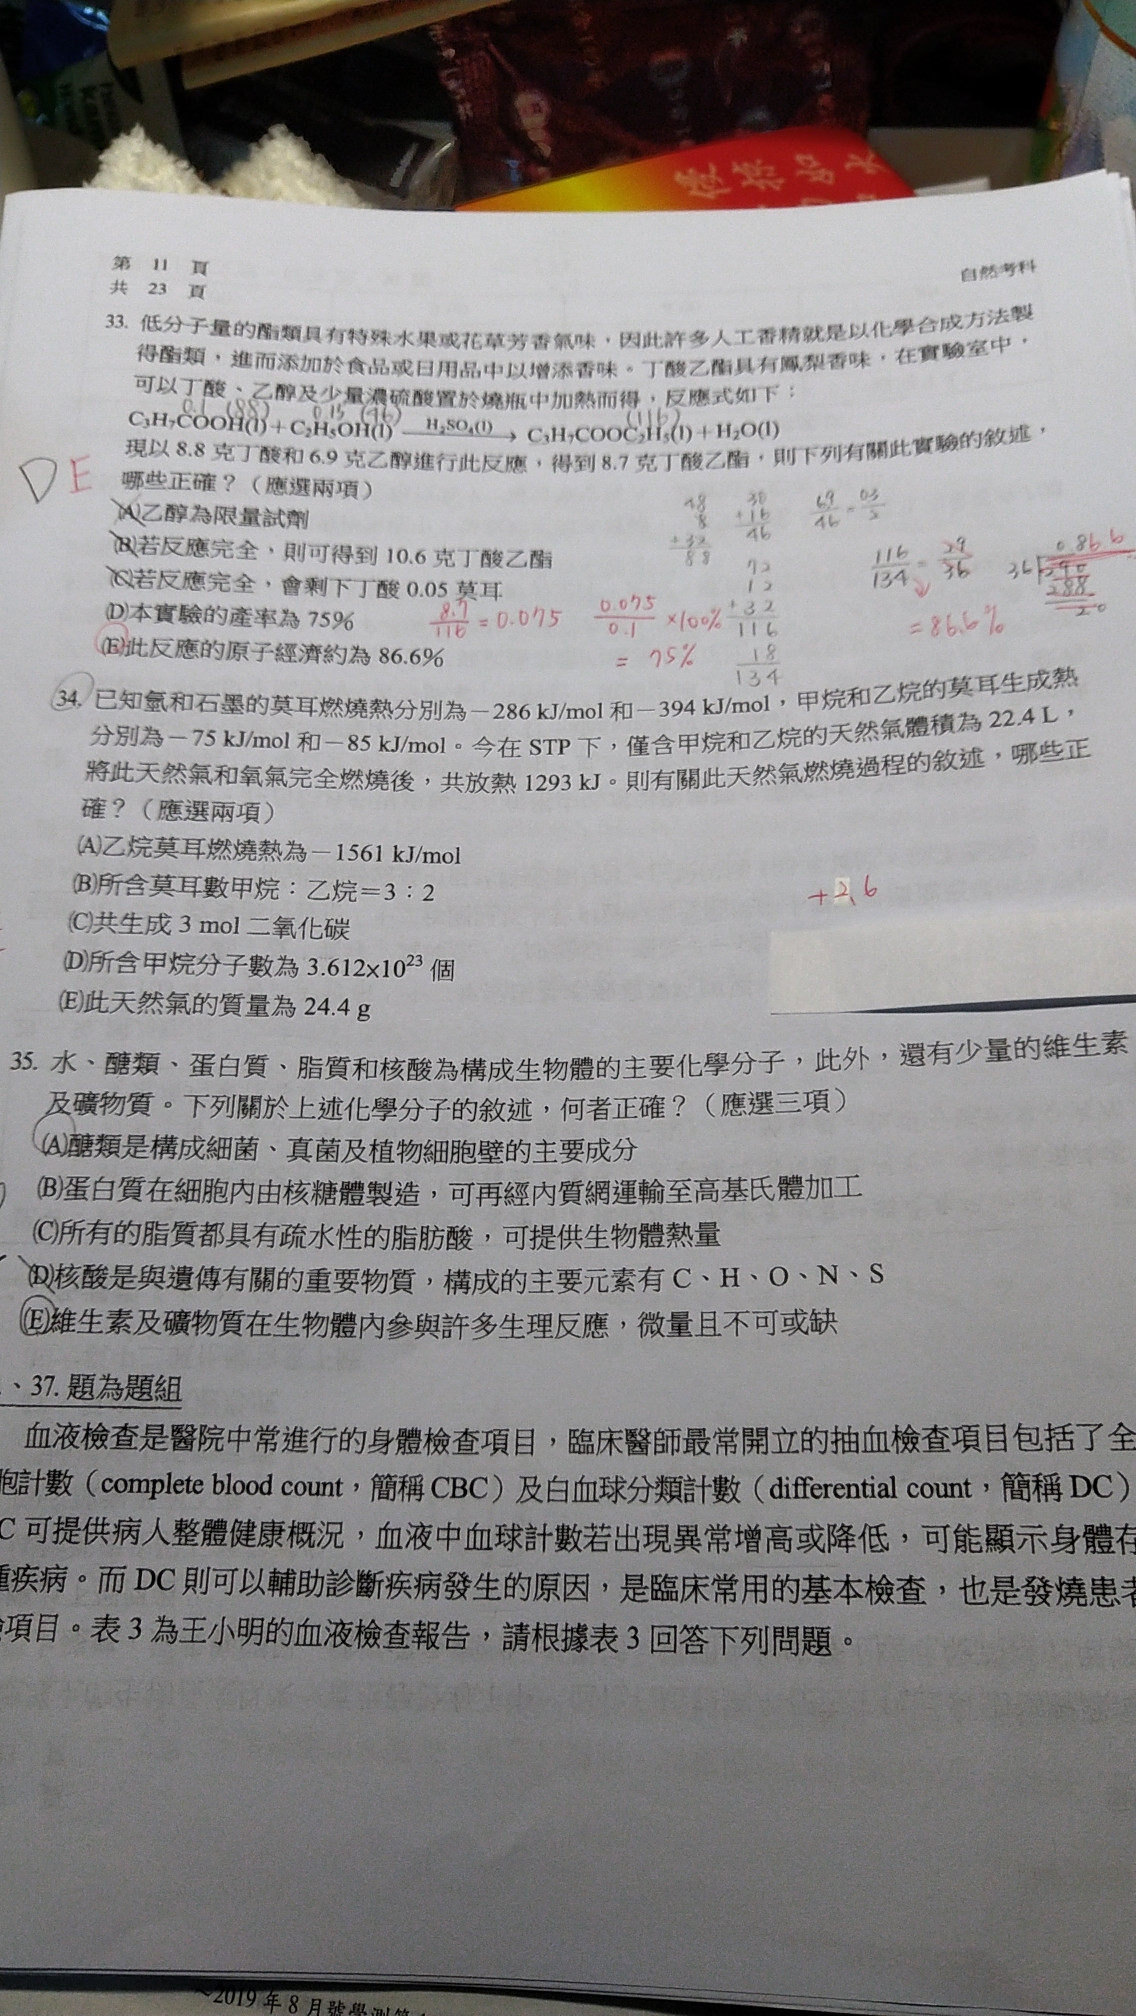 第 11 頁
共 23 頁
自然考科
33. 低分子量的酯類具有特殊水果或花草芳香氣味，因此許多人工香精就是以化學合成方法製
得酯類，進而添加於食品或日用品中以增添香味。丁酸乙酯具有鳳梨香味，在實驗室中，
可以丁酸、乙醇及少量濃硫酸置於燒瓶中加熱而得，反應式如下：
0.1 (88) 0.15 (46) (116)
C₃H₇COOH(l)+C₂H₅OH(l) H₂SO₄(l) → C₃H₇COOC₂H₅(l)+H₂O(l)
現以 8.8 克丁酸和 6.9 克乙醇進行此反應，得到 8.7 克丁酸乙酯，則下列有關此實驗的敘述，
DE
哪些正確？（應選兩項）
(A)乙醇為限量試劑
(B)若反應完全，則可得到 10.6 克丁酸乙酯
(C)若反應完全，會剩下丁酸 0.05 莫耳
(D)本實驗的產率為 75%
(E)此反應的原子經濟約為 86.6%
48
8
+32
88
30
+16
46
69/46
72
12
+32
116
18
134
8.7/116 = 0.075
0.075/0.1 ×100%
= 75%
116/134 = 29/36
= 86.6%
34. 已知氫和石墨的莫耳燃燒熱分別為－286 kJ/mol 和－394 kJ/mol，甲烷和乙烷的莫耳生成熱
分別為－75 kJ/mol 和－85 kJ/mol。今在 STP 下，僅含甲烷和乙烷的天然氣體積為 22.4 L，
將此天然氣和氧氣完全燃燒後，共放熱 1293 kJ。則有關此天然氣燃燒過程的敘述，哪些正
確？（應選兩項）
(A)乙烷莫耳燃燒熱為－1561 kJ/mol
(B)所含莫耳數甲烷：乙烷＝3：2
(C)共生成 3 mol 二氧化碳
(D)所含甲烷分子數為 3.612×10²³ 個
(E)此天然氣的質量為 24.4 g
+2.6
35. 水、醣類、蛋白質、脂質和核酸為構成生物體的主要化學分子，此外，還有少量的維生素
及礦物質。下列關於上述化學分子的敘述，何者正確？（應選三項）
(A)醣類是構成細菌、真菌及植物細胞壁的主要成分
(B)蛋白質在細胞內由核糖體製造，可再經內質網運輸至高基氏體加工
(C)所有的脂質都具有疏水性的脂肪酸，可提供生物體熱量
(D)核酸是與遺傳有關的重要物質，構成的主要元素有 C、H、O、N、S
(E)維生素及礦物質在生物體內參與許多生理反應，微量且不可或缺
、37. 題為題組
血液檢查是醫院中常進行的身體檢查項目，臨床醫師最常開立的抽血檢查項目包括了全
胞計數（complete blood count，簡稱 CBC）及白血球分類計數（differential count，簡稱 DC）
C 可提供病人整體健康概況，血液中血球計數若出現異常增高或降低，可能顯示身體存
疾病。而 DC 則可以輔助診斷疾病發生的原因，是臨床常用的基本檢查，也是發燒患者
項目。表 3 為王小明的血液檢查報告，請根據表 3 回答下列問題。
~2019 年 8 月號學測